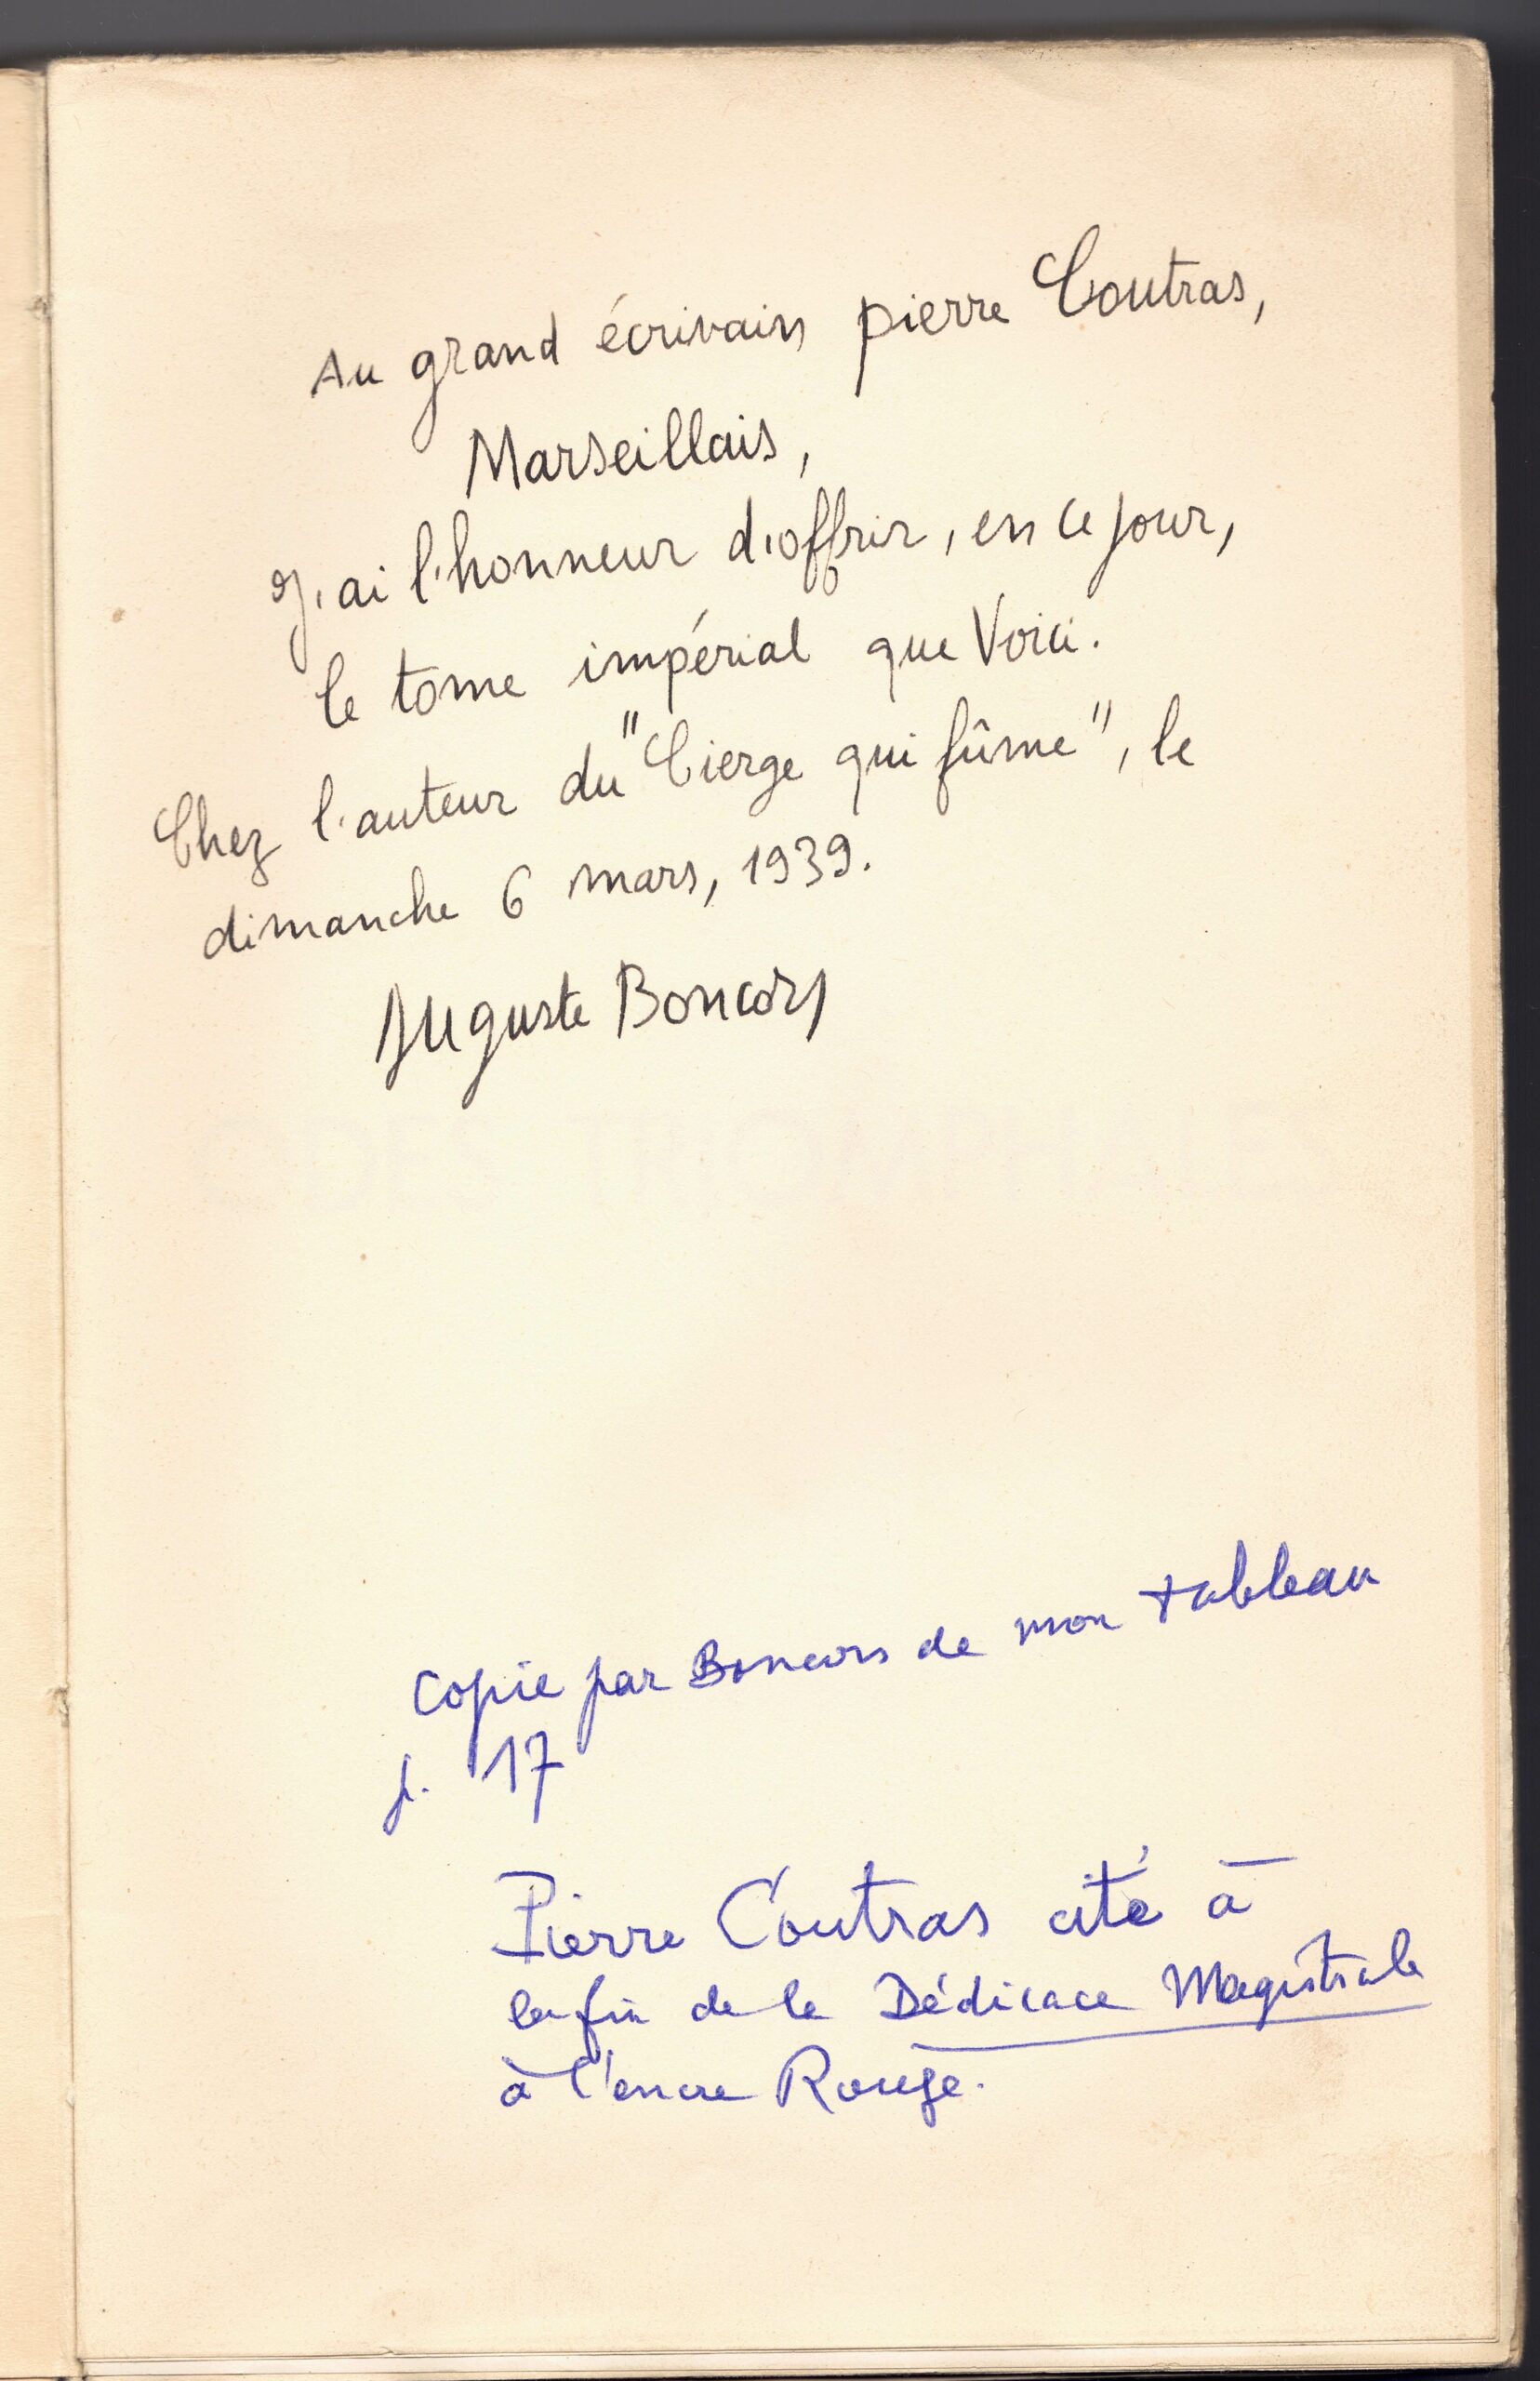 Au grand écrivain pierre Coutras,
Marseillais,
J'ai l'honneur d'offrir, en ce jour,
le tome impérial que Voici.
Chez l'auteur du "Cierge qui fûme", le
dimanche 6 mars, 1939.
Auguste Boncors
Copie par Boncors de mon tableau
p. 17
Pierre Coutras cité à
la fin de la Dédicace Magistrale
à l'encre Rouge.